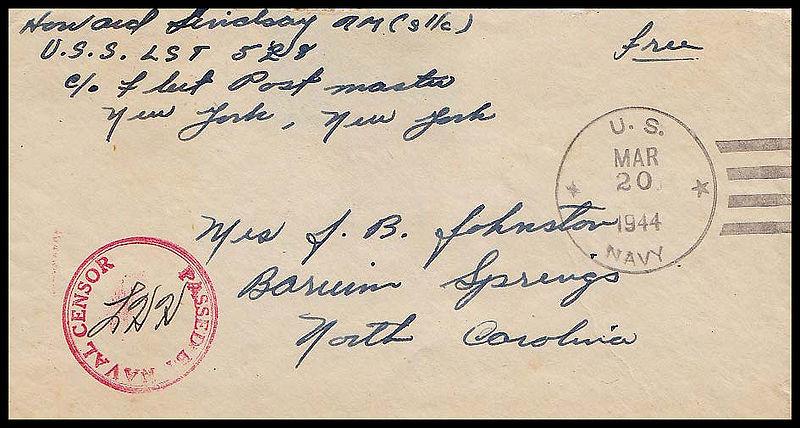 Howard Lindsay RM (S1/c)
U.S.S. LST 528
c/o Fleet Post master
New York, New York
Free
U. S.
MAR
20
1944
NAVY
Mrs J. B. Johnston
Barium Springs
North Carolina
PASSED BY NAVAL CENSOR